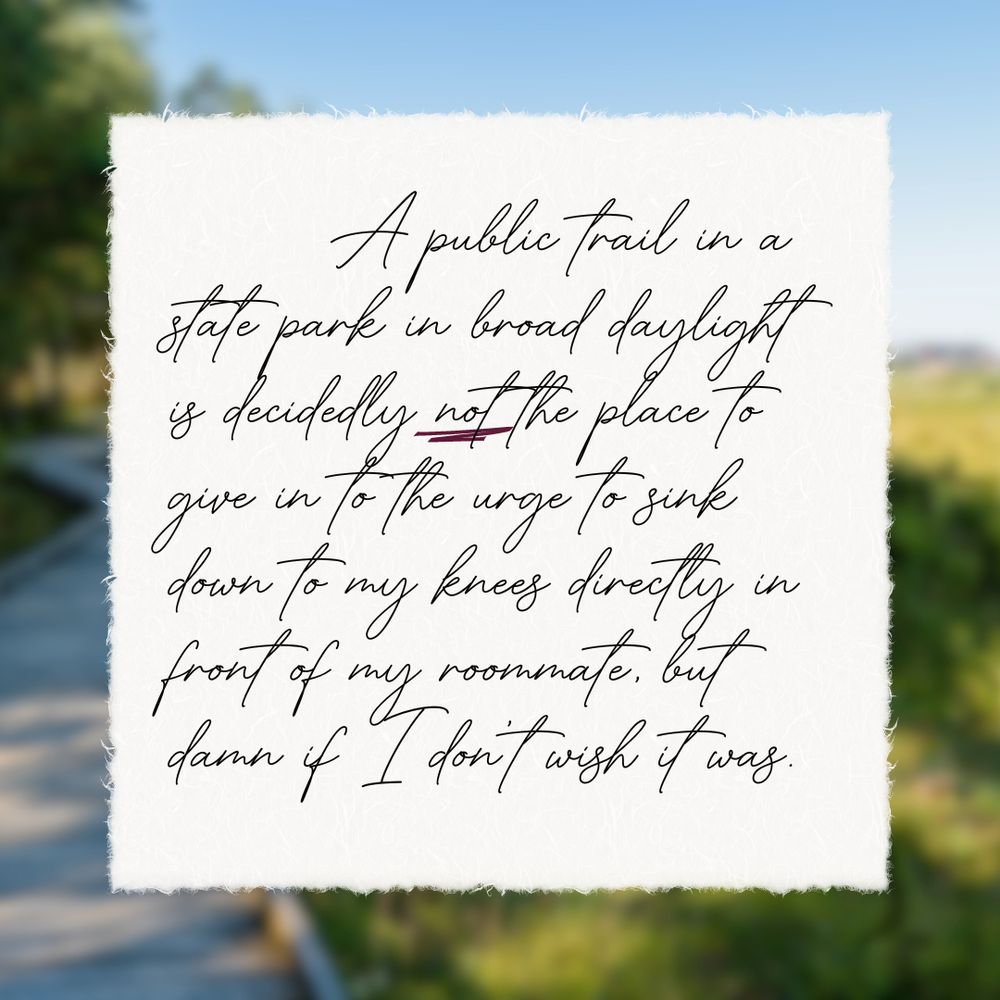 A public trail in a
state park in broad daylight
is decidedly not the place to
give in to the urge to sink
down to my knees directly in
front of my roommate, but
damn if I don't wish it was.